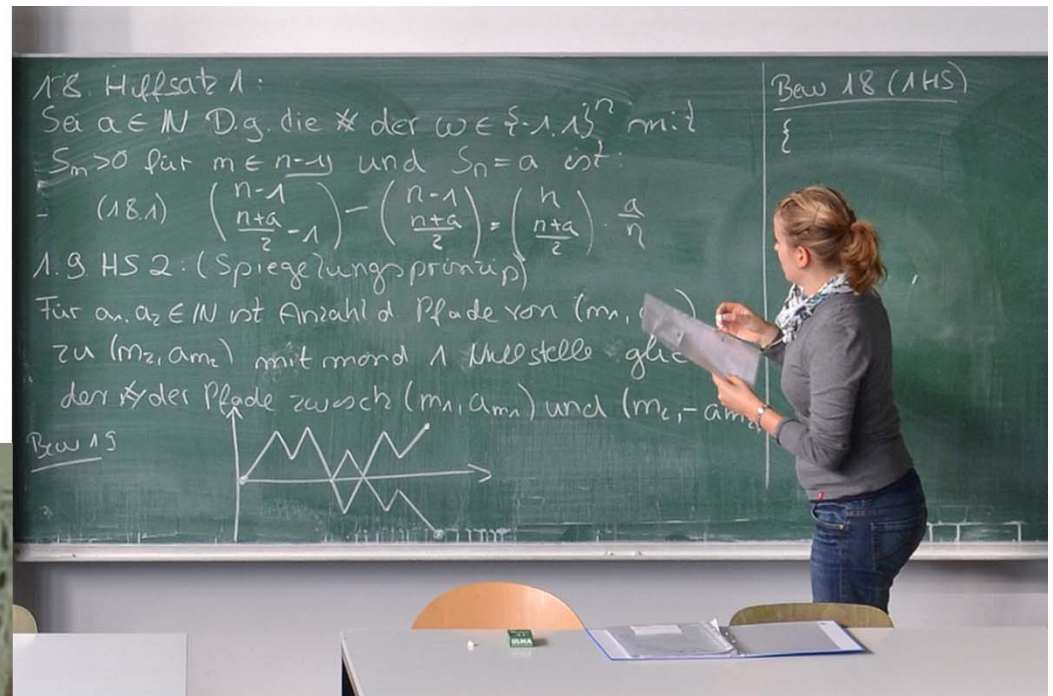 1.8. Hilfsatz 1:
Sei a ∈ ℕ D.g. die # der ω ∈ {-1,1}ⁿ mit
Sₘ>0 für m ∈ n-1 und Sₙ = a ist:
(1.8.1) (n-1 über (n+a)/2 - 1) - (n-1 über (n+a)/2) = (n über (n+a)/2) · a/n
1.9. HS 2: (Spiegelungsprinzip)
Für a₁, a₂ ∈ ℕ ist Anzahl d Pfade von (m₁,
zu (m₂, aₘ₂) mit mind 1 Nullstelle
der # der Pfade zwisch (m₁, aₘ₁) und (m₂, -aₘ₂
Bew 1.9
Bew 1.8 (1HS)
{
ULMA